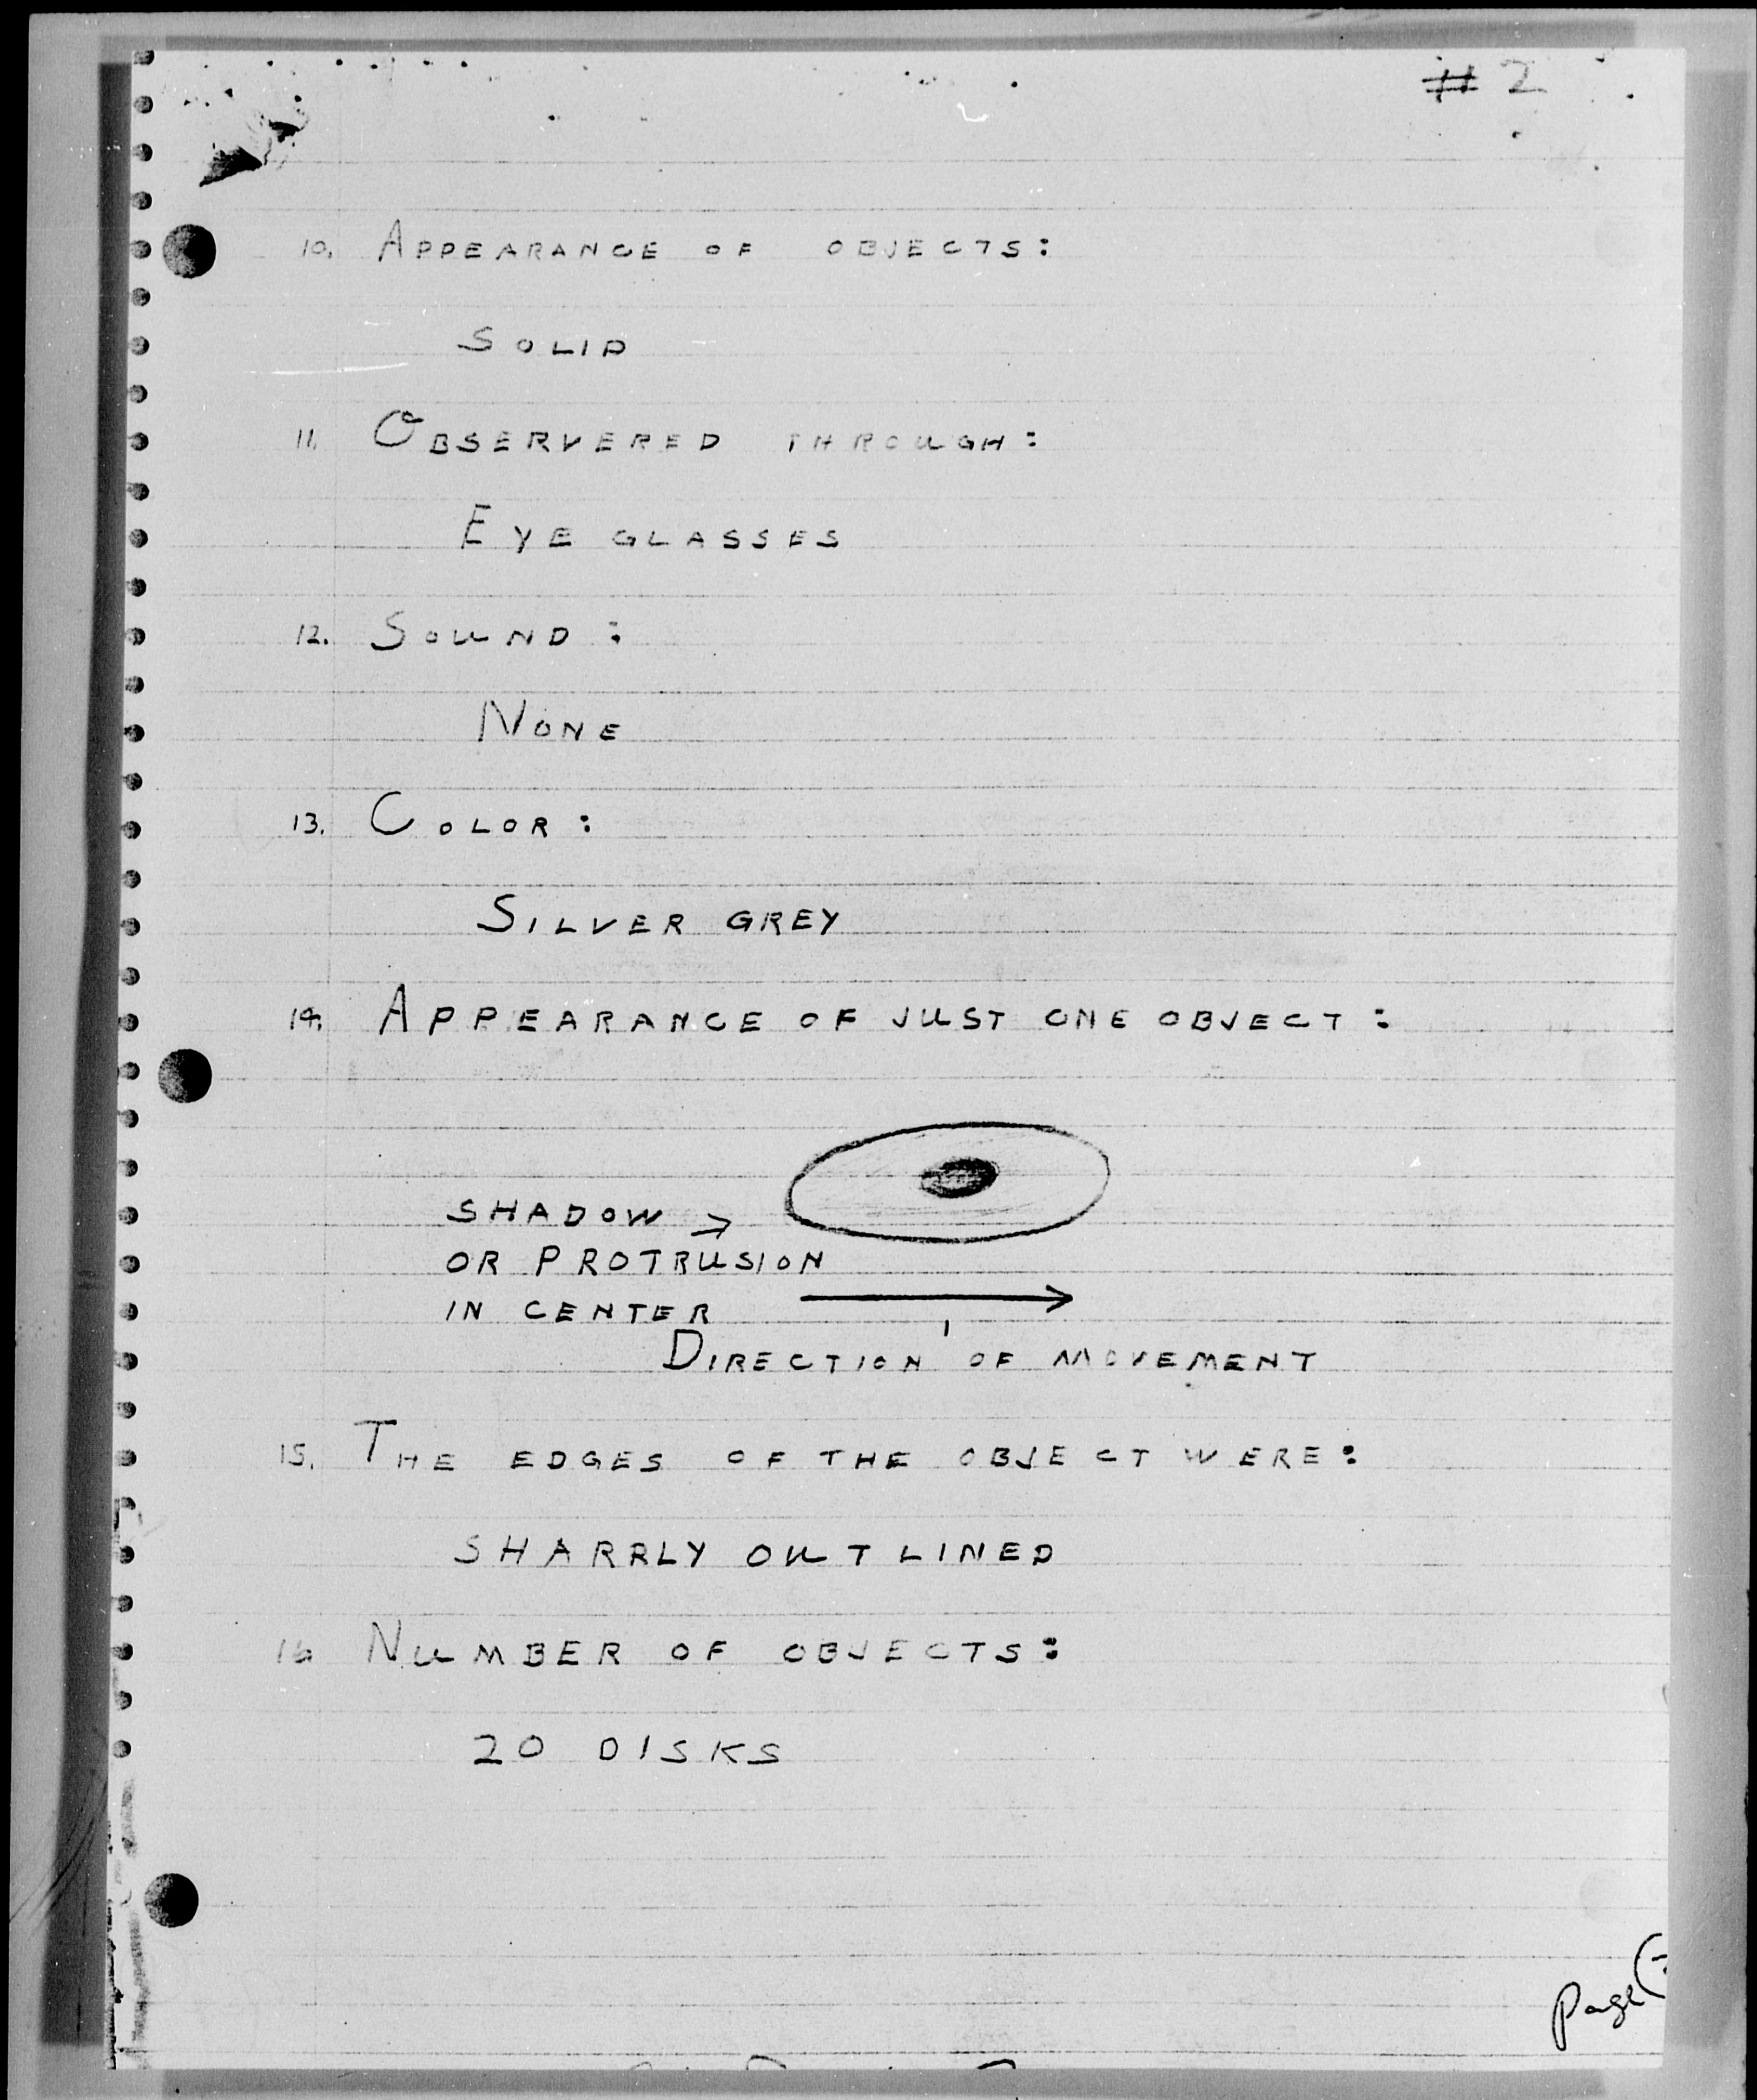 # 2
10. APPEARANCE OF OBJECTS:
SOLID
11. OBSERVERED THROUGH:
EYE GLASSES
12. SOUND:
NONE
13. COLOR:
SILVER GREY
14. APPEARANCE OF JUST ONE OBJECT:
SHADOW →
OR PROTRUSION
IN CENTER
DIRECTION OF MOVEMENT
15. THE EDGES OF THE OBJECT WERE:
SHARPLY OUTLINED
16 NUMBER OF OBJECTS:
20 DISKS
Page